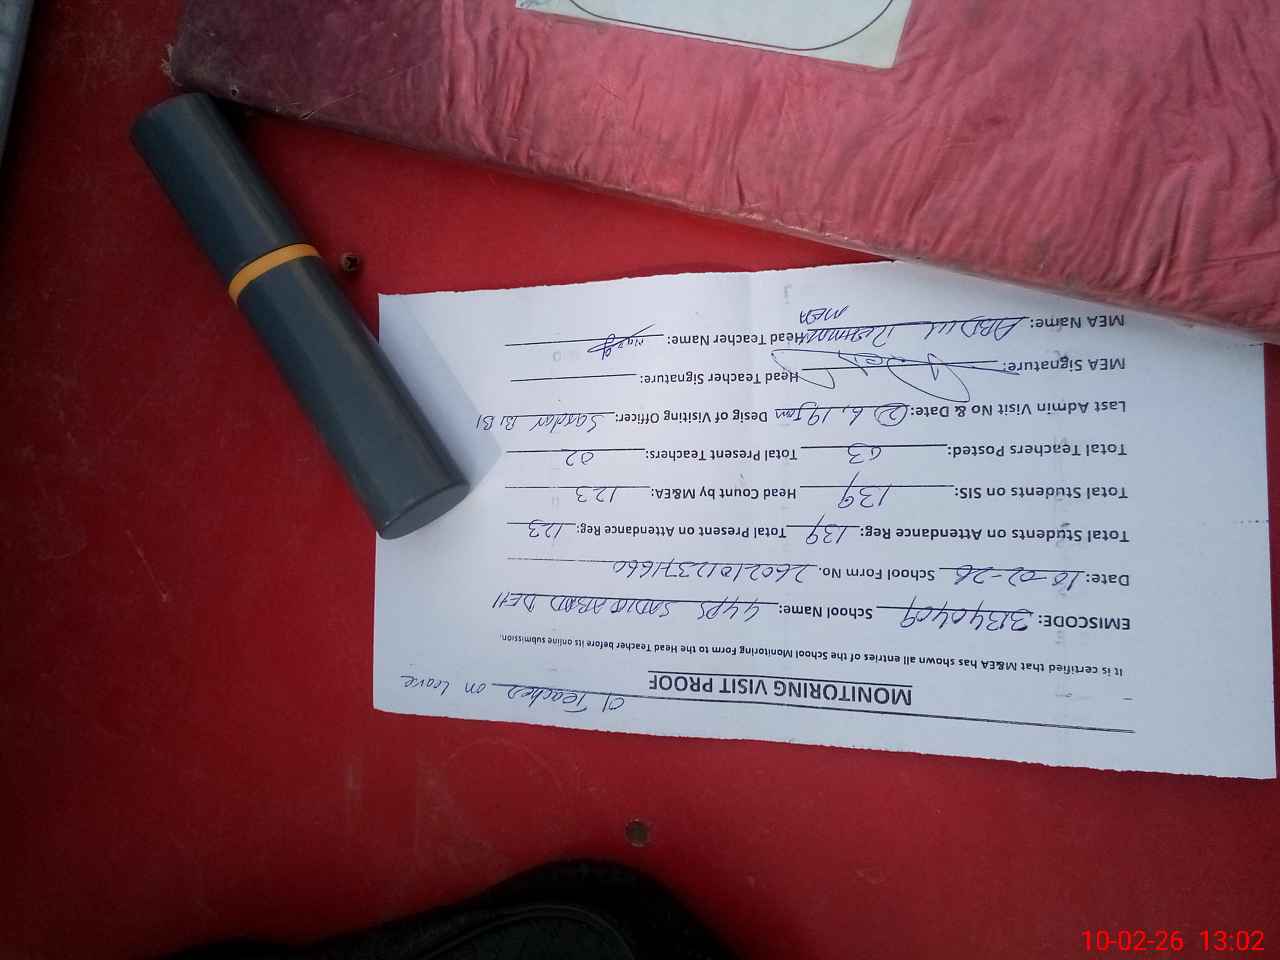 01 Teacher on leave
MONITORING VISIT PROOF
It is certified that M&EA has shown all entries of the School Monitoring Form to the Head Teacher before its online submission.
EMISCODE: 31340409 School Name: GGPS SADIQ ABAD DEH
Date: 10-02-26 School Form No. 26021012371660
Total Students on Attendance Reg: 139 Total Present on Attendance Reg: 123
Total Students on SIS: 139 Head Count by M&EA: 123
Total Teachers Posted: 03 Total Present Teachers: 02
Last Admin Visit No & Date: 2 6, 19 Jan Desig of Visiting Officer:
MEA Signature: Head Teacher Signature:
MEA Name: ABDUL REHMAN MEA Head Teacher Name:
10-02-26 13:02